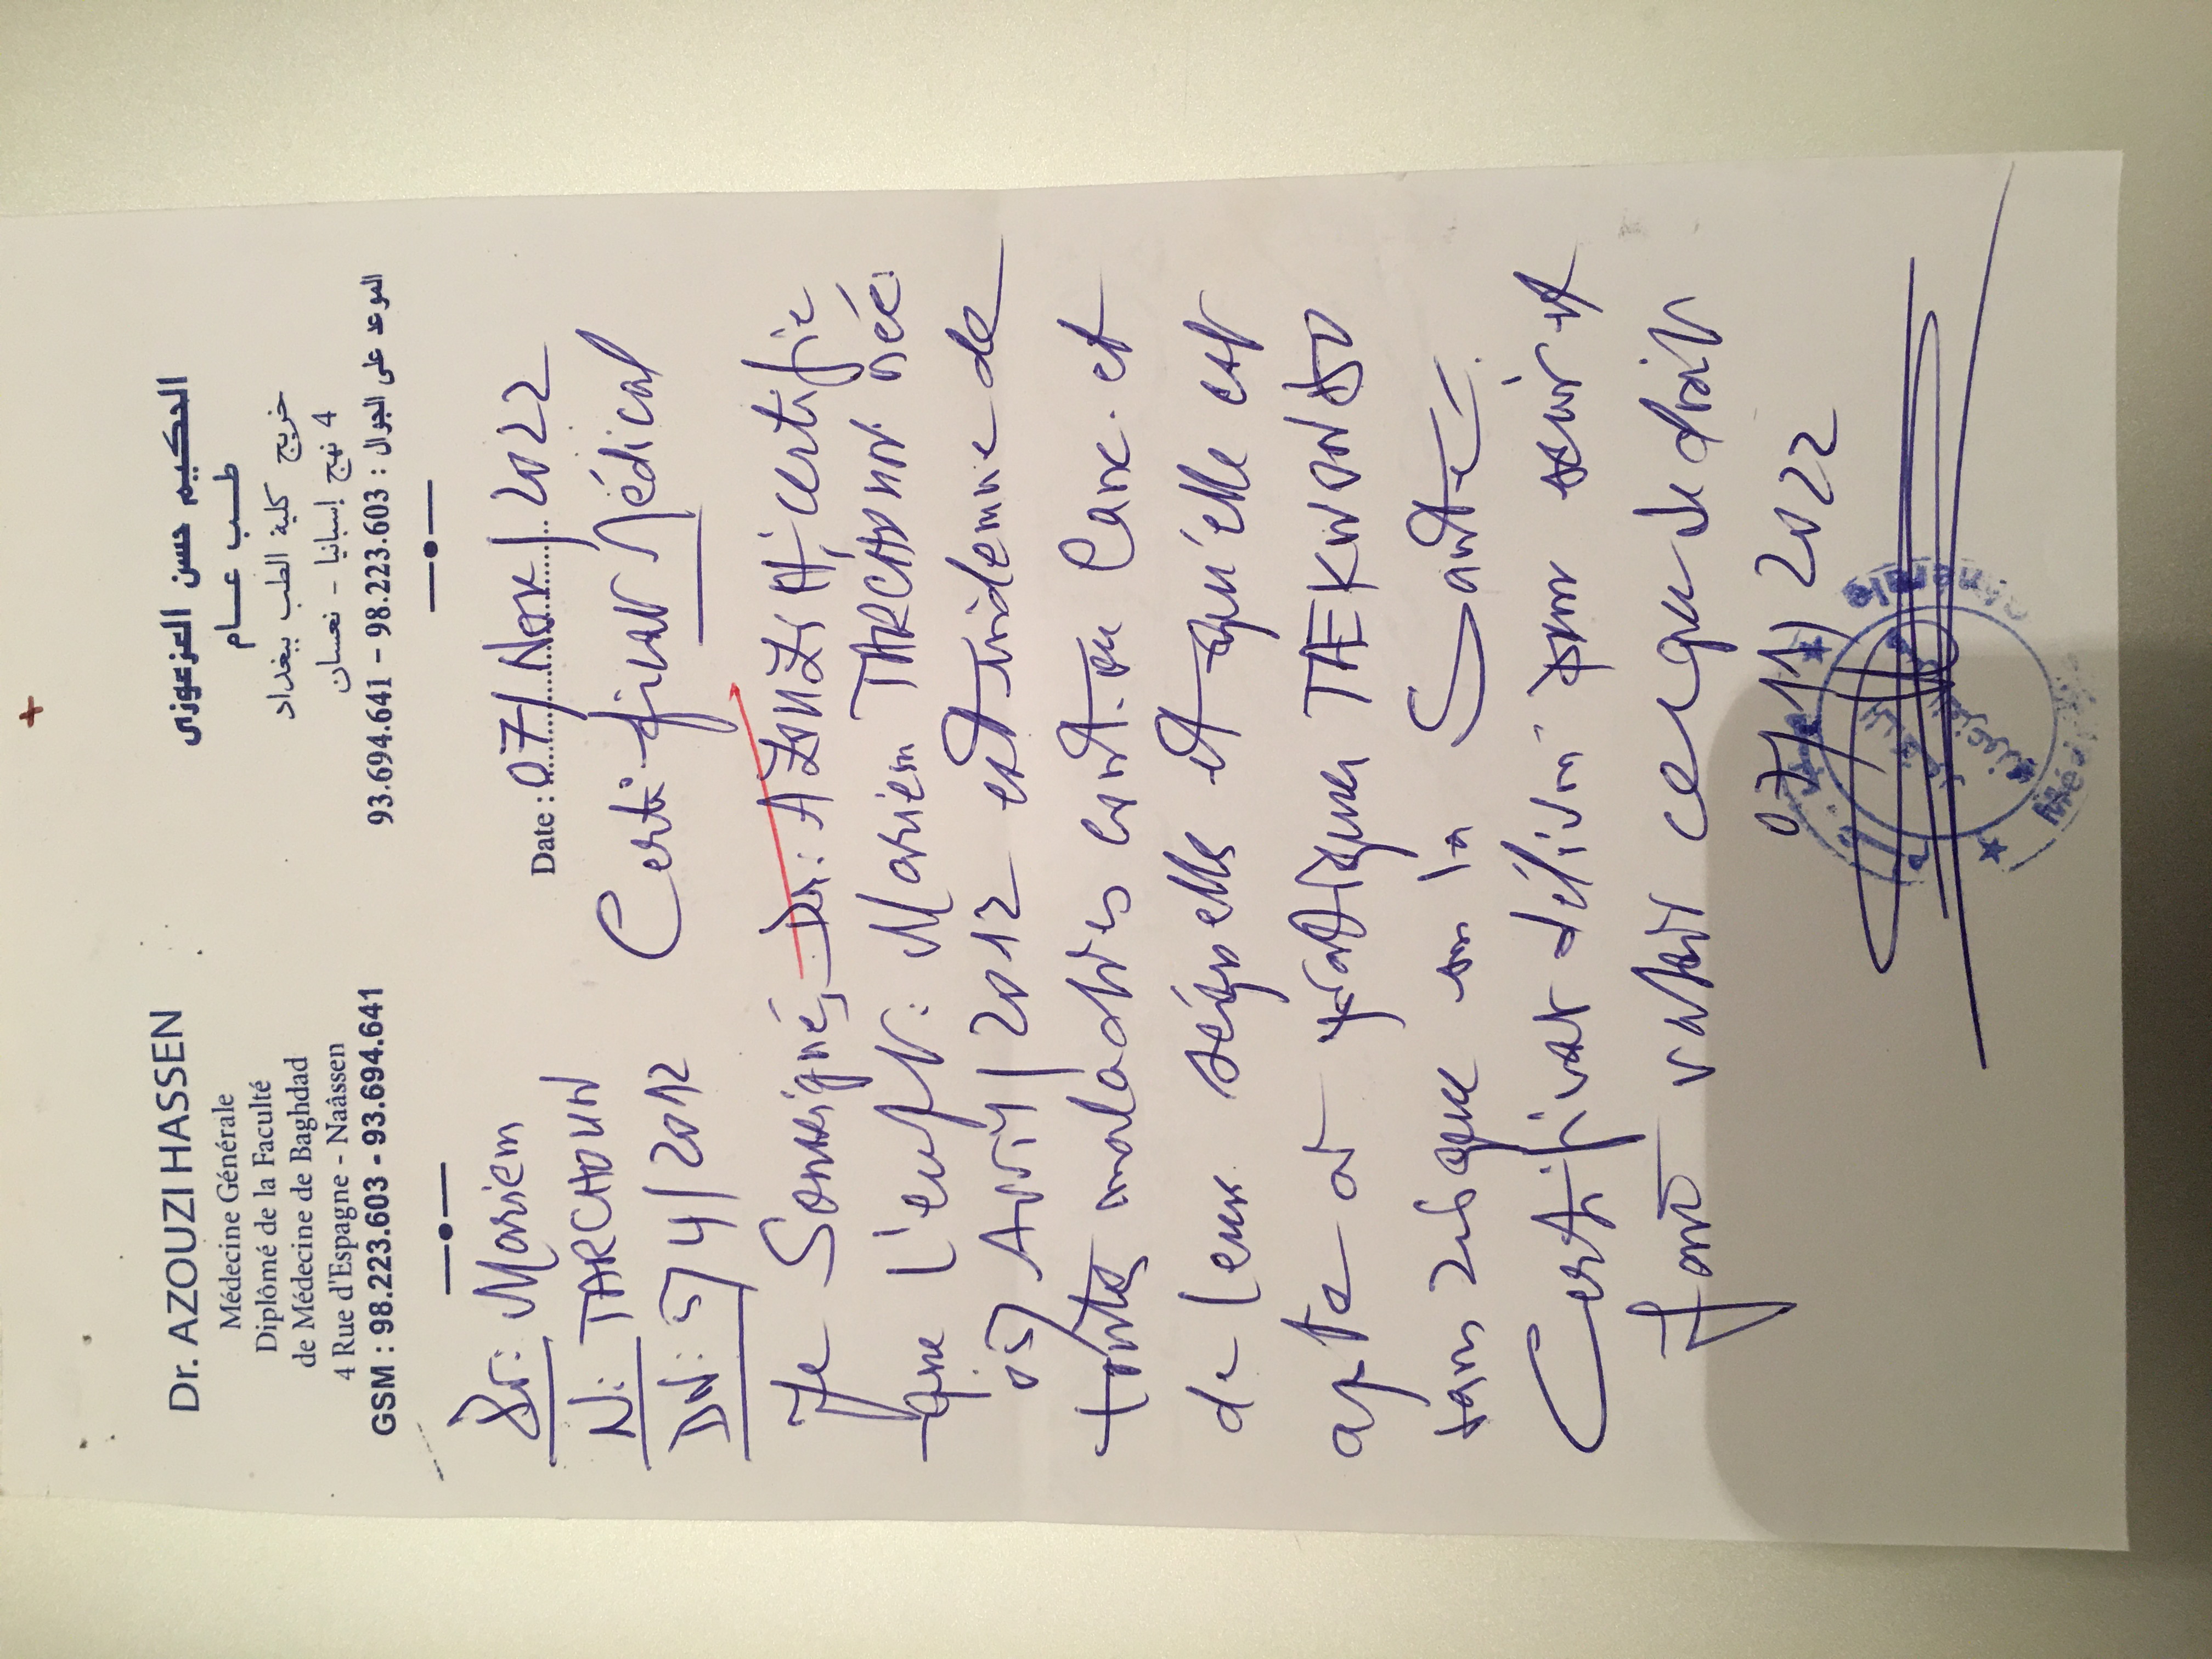 Dr. AZOUZI HASSEN
Médecine Générale
Diplômé de la Faculté
de Médecine de Baghdad
4 Rue d'Espagne - Naâssen
GSM : 98.223.603 - 93.694.641
الحكيم حسن العزعوزي
طب عام
خريج كلية الطب ببغداد
4 نهج إسبانيا - نعسان
الموعد على الجوال : 98.223.603 – 93.694.641
Date : 07/Nov/2022
Pr: Mariem
N: TARCHOUN
DN: 5/4/2012
Certificat Médical
Je Soussigné, Dr: AZOUZI H, certifie
que l'enft: Mariem TARCHOUN née
05/Avril/2012 est indemne de
toutes maladies
de leur séquelle et qu'elle est
apte à pratiquer TAEKWONDO
sans risque sur la Santé.
Certificat délivré pour servir et
faire valoir ce que de droit
07/11/2022